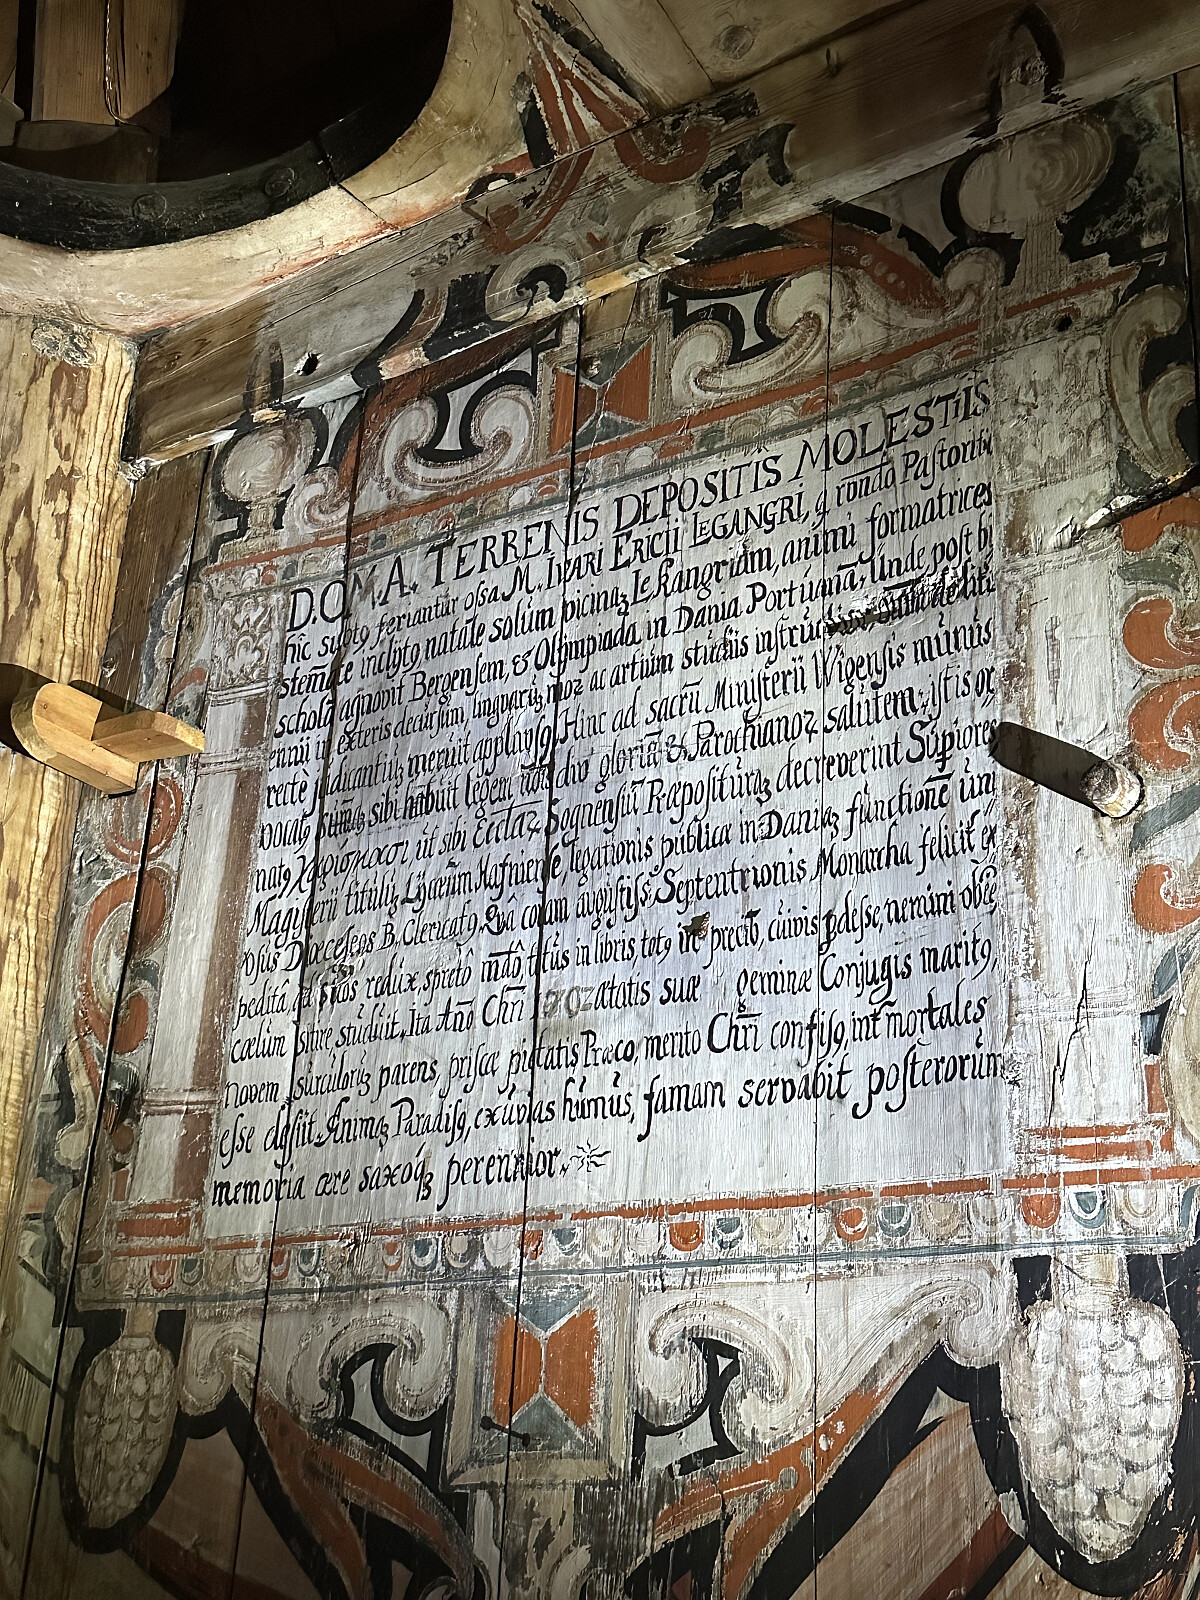 D.O.M.A. TERRENIS DEPOSITIS MOLESTIIS
hic subtꝯ feriantur ossa M. IVARI ERICII LEGANGRI, q̨ rōndo Pastoritii
stem̄ate inclytꝯ natale solum vicinaꝫ Lekangriam, animū formatrices
scholā agnovit Bergensem, & Olympiada in Dania Portuanā, Unde post bi
ennii in exteris decursum, linguarūꝫ moꝝ ac artium studiis instru
recte judicantiūꝫ meruit applausꝯ Hinc ad sacrū Ministerii Wigensis munus
vocatꝯ sum̄aꝫ sibi habuit legem divo gloriā & Parochianoꝝ salutem: istis or
natꝯ χαρίσμασι, ut sibi Eccl̄aꝝ Sognensiū Præposituraꝫ decreverint Superiores
Magisterii titulūꝫ Lycæum Hafniense, legationis publicæ in Daniaꝫ functionē uni
vsus Diœceseos B. Clericatꝯ, Quā coram augustiss: Septentrionis Monarcha feliciť ex
peditâ, ad suos redux, spretô mūdô, totus in libris, totꝯ in precib, cuivis pdesse, nemini obēē
cœlum sitire studuit, Ita An̄o Chr̄i ætatis suæ geminæ Conjugis maritꝯ,
novem surculorūꝫ parens, priscæ pietatis Præco, merito Chr̄i confisꝯ, int mortales
esse desiit. Animaꝫ Paradisꝯ, exuvias humus, famam servabit posterorum
memoria ære saxoqꝫ perennior.